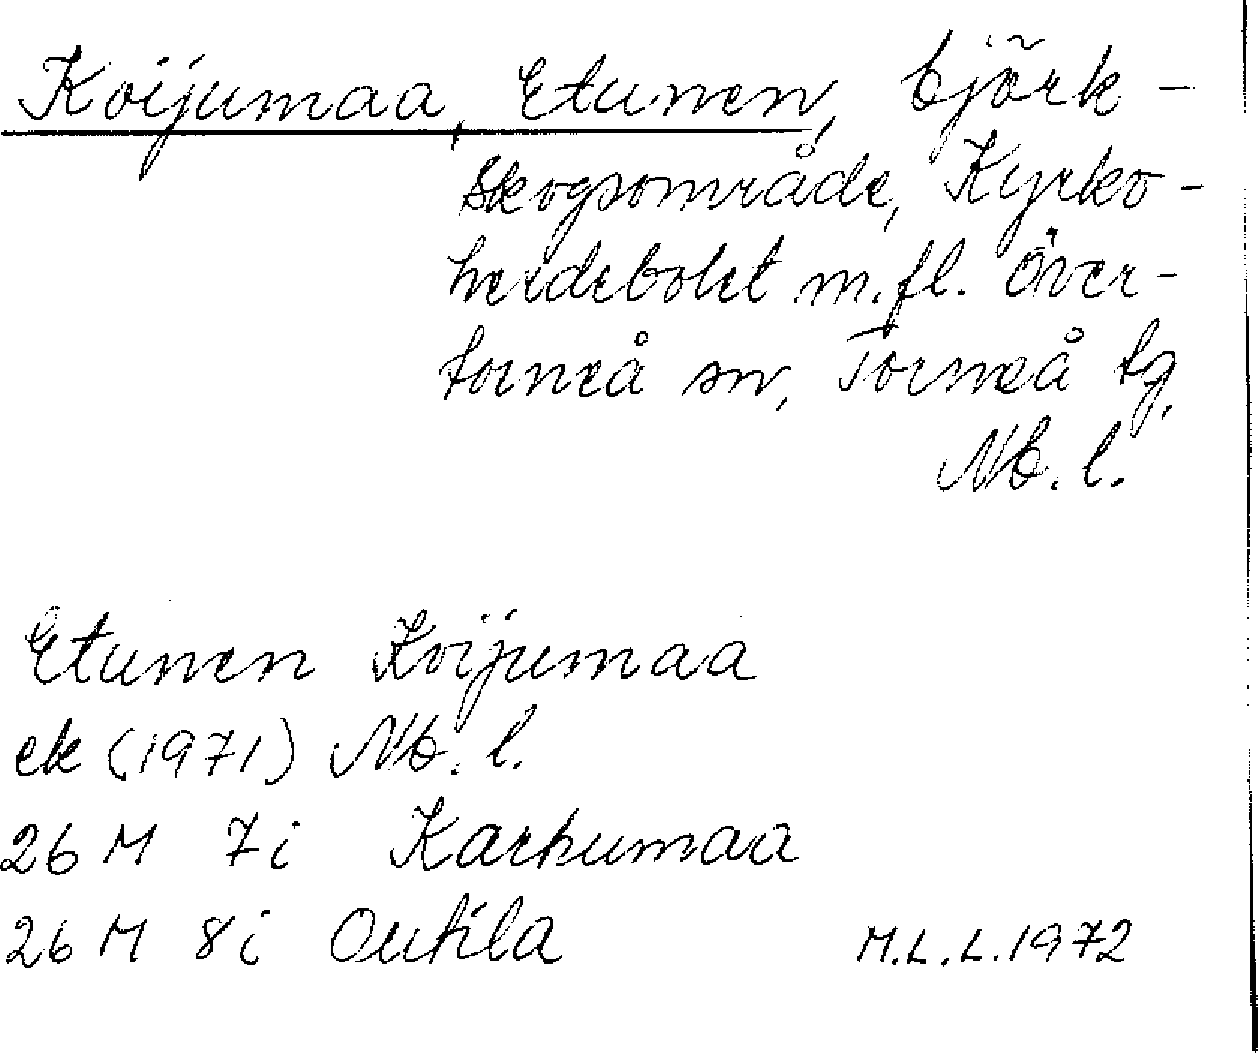 Koijumaa, Etunen, björk-
skogsområde, Kyrko-
herdebolet m.fl. Över-
torneå sn, Torneå tg,
Nb. l.
Etunen Koijumaa
ek (1971) Nb. l.
26 M 7i Karhumaa
26 M 8i Outila M.L.L. 1972